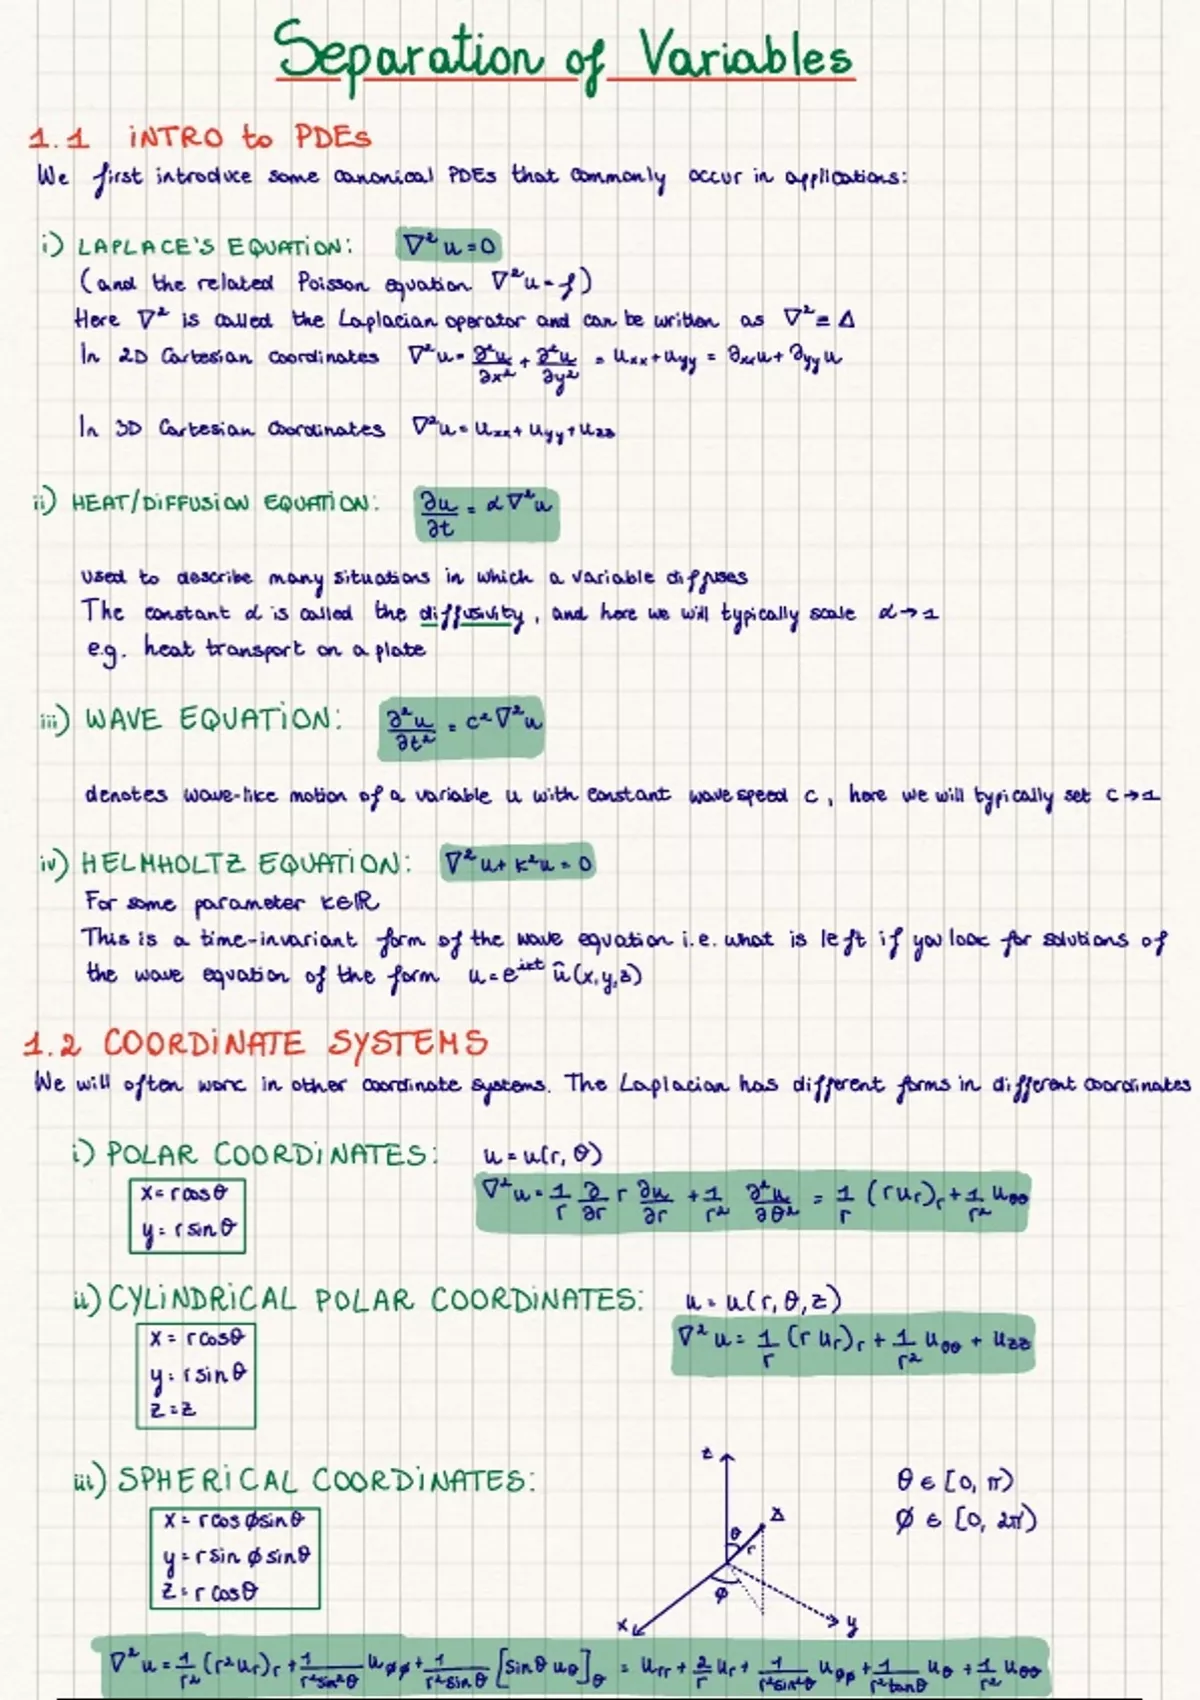 Separation of Variables
1.1 INTRO to PDEs
We first introduce some canonical PDEs that commonly occur in applications:
i) LAPLACE'S EQUATION: ∇²u=0
(and the related Poisson equation ∇²u=f)
Here ∇² is called the Laplacian operator and can be written as ∇²=Δ
In 2D Cartesian coordinates ∇²u = ∂²u/∂x² + ∂²u/∂y² = uxx + uyy = ∂xxu + ∂yyu
In 3D Cartesian Coordinates ∇²u = uxx + uyy + uzz
ii) HEAT/DIFFUSION EQUATION: ∂u/∂t = α∇²u
used to describe many situations in which a variable diffuses
The constant α is called the diffusivity, and here we will typically scale α→1
e.g. heat transport on a plate
iii) WAVE EQUATION: ∂²u/∂t² = c²∇²u
denotes wave-like motion of a variable u with constant wave speed c, here we will typically set c→1
iv) HELMHOLTZ EQUATION: ∇²u + k²u = 0
For some parameter k∈ℝ
This is a time-invariant form of the wave equation i.e. what is left if you look for solutions of
the wave equation of the form u=e^ikt û(x,y,z)
1.2 COORDINATE SYSTEMS
We will often work in other coordinate systems. The Laplacian has different forms in different coordinates
i) POLAR COORDINATES: u=u(r,θ)
x=rcosθ
y=rsinθ
∇²u = 1/r ∂/∂r r ∂u/∂r + 1/r² ∂²u/∂θ² = 1/r (rur)r + 1/r² uθθ
ii) CYLINDRICAL POLAR COORDINATES: u=u(r,θ,z)
x = rcosθ
y = rsinθ
z = z
∇²u = 1/r (r ur)r + 1/r² uθθ + uzz
iii) SPHERICAL COORDINATES:
x = rcosϕsinθ
y = rsinϕsinθ
z = rcosθ
z
θ
r
ϕ
x
y
θ ∈ [0, π)
ϕ ∈ [0, 2π)
∇²u = 1/r² (r²ur)r + 1/r²sin²θ uϕϕ + 1/r²sinθ [sinθ uθ]θ = urr + 2/r ur + 1/r²sin²θ uϕϕ + 1/r²tanθ uθ + 1/r² uθθ